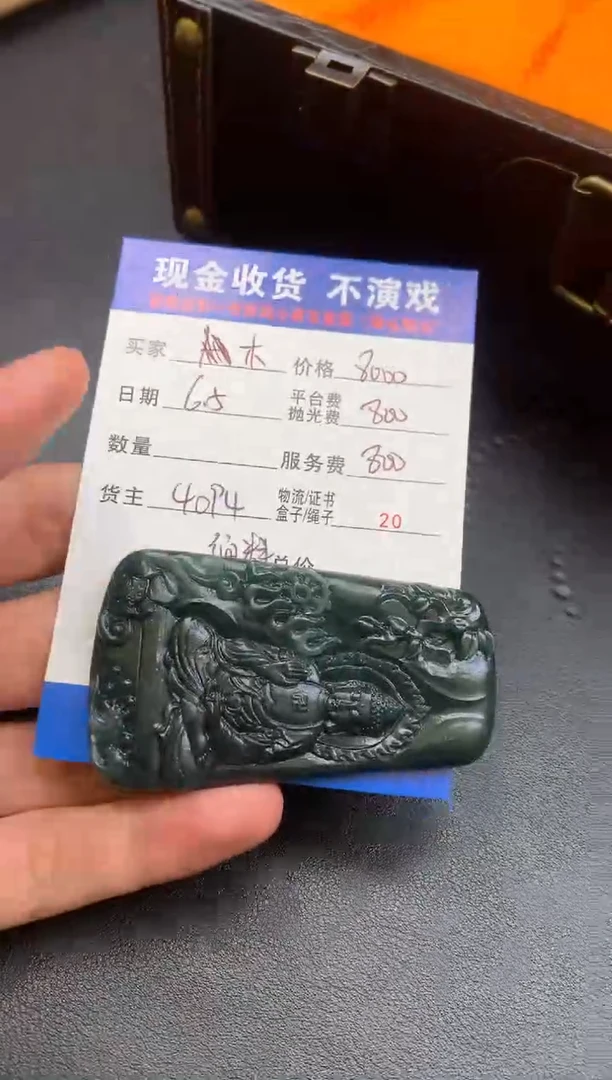 现金收货 不演戏
买家 木 价格 8000
日期 6.5 平台费 抛光费 800
数量 服务费 800
货主 40P4 物流/证书 盒子/绳子 20
总价